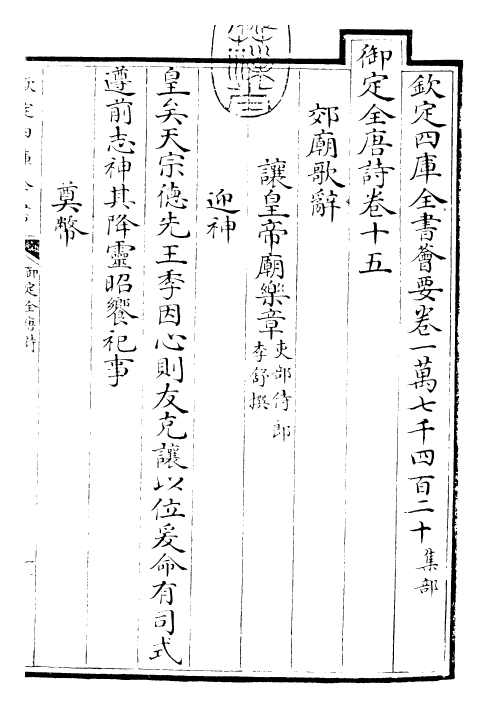 欽定四庫全書薈要卷一萬七千四百二十集部
御定全唐詩卷十五
郊廟歌辭
讓皇帝廟樂章吏部侍郎李舒撰
迎神
皇矣天宗德先王季因心則友克讓以位爰命有司式
遵前志神其降靈昭饗祀事
奠幣
御定全唐詩